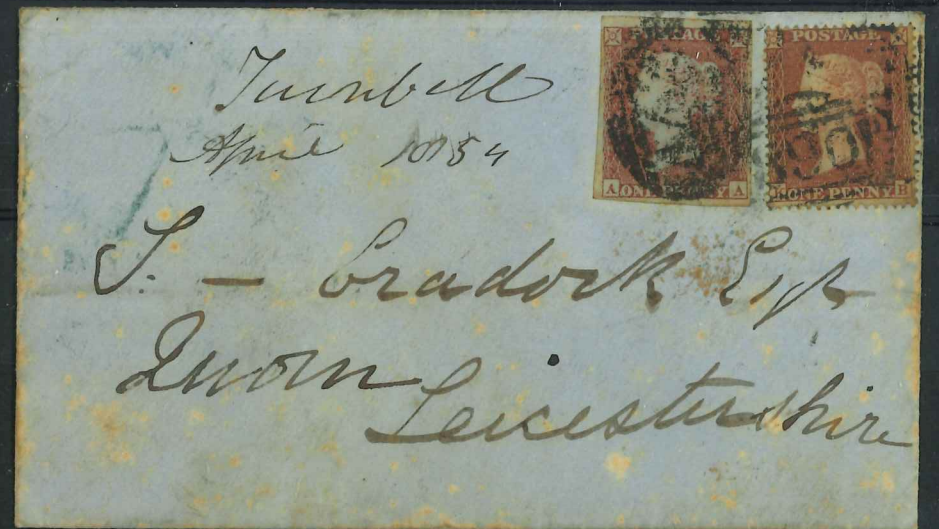 Turnbull
April 1854
POSTAGE
A ONE PENNY A
POSTAGE
K ONE PENNY B
T. — Cradock Esqr
Quorn
Leicestershire